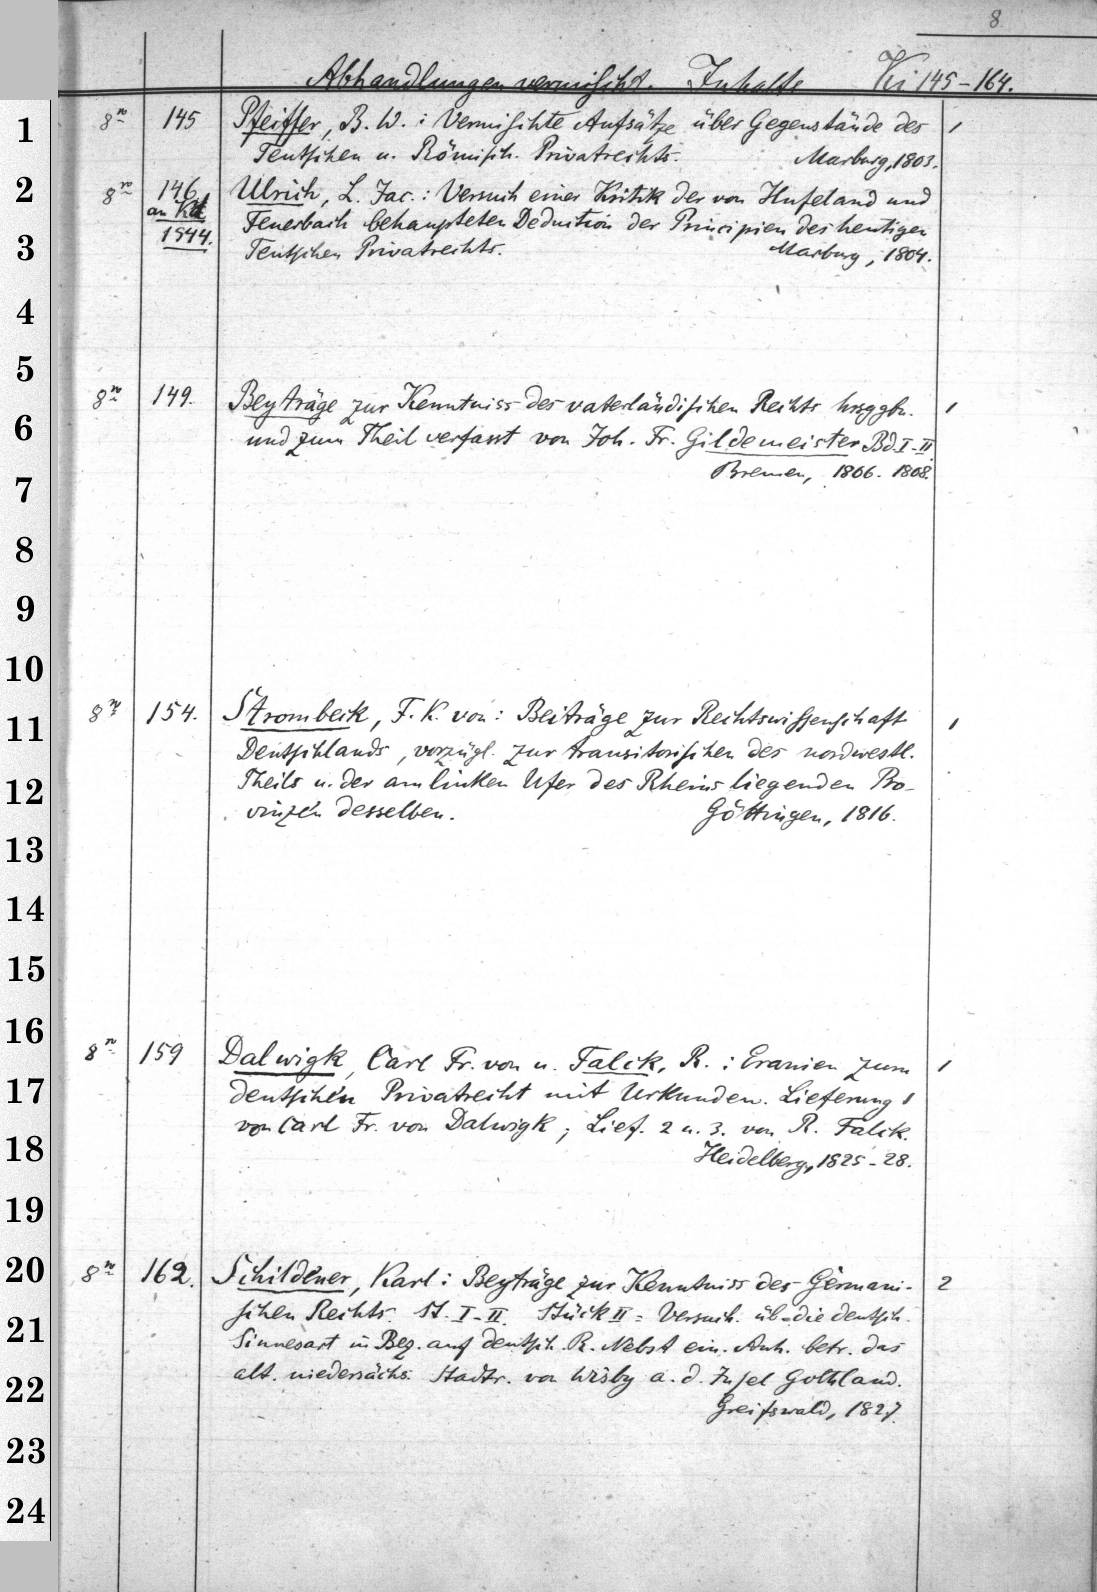 8
Abhandlungen vermischt. Inhalts Ki 145-164.
1 8n 145 Pfeiffer, B. W.: Vermischte Aufsätze über Gegenstände des 1
Teutschen u. Römisch. Privatrechts. Marburg, 1803.
2 8n 146 Ulrich, L. Jac.: Versuch einer Kritik der von Hufeland und
an
1844. Feuerbach behaupteten Deduction der Principien des heutigen
3 Teutschen Privatrechts. Marburg, 1804.
4
5
8n 149. Beyträge zur Kenntniss des vaterländischen Rechts hrsggbn. 1
6 und zum Theil verfasst von Joh. Fr. Gildemeister Bd. I-II.
Bremen, 1806. 1808.
7
8
9
10
8n 154. Strombeck, F. K. von: Beiträge zur Rechtswissenschaft 1
11
Deutschlands, vorzügl. zur transitorischen des nordwestl.
12 Theils u. der am linken Ufer des Rheins liegenden Pro-
vinzen desselben. Göttingen, 1816.
13
14
15
16
8n 159 Dalwigk, Carl Fr. von u. Falck, R.: Eranien zum 1
17 deutschen Privatrecht mit Urkunden. Lieferung 1
von Carl Fr. von Dalwigk; Lief. 2 u. 3. von R. Falck.
18 Heidelberg, 1825-28.
19
20 8n 162. Schildener, Karl: Beyträge zur Kenntniss des Germani- 2
schen Rechts. St. I-II. Stück II = Versuch. üb. die deutsch.
21 Sinnesart in Bez. auf deutsch. R. Nebst ein. Anh. betr. das
22 alt. niedersächs. Stadtr. von Wisby a. d. Insel Gothland.
Greifswald, 1827.
23
24